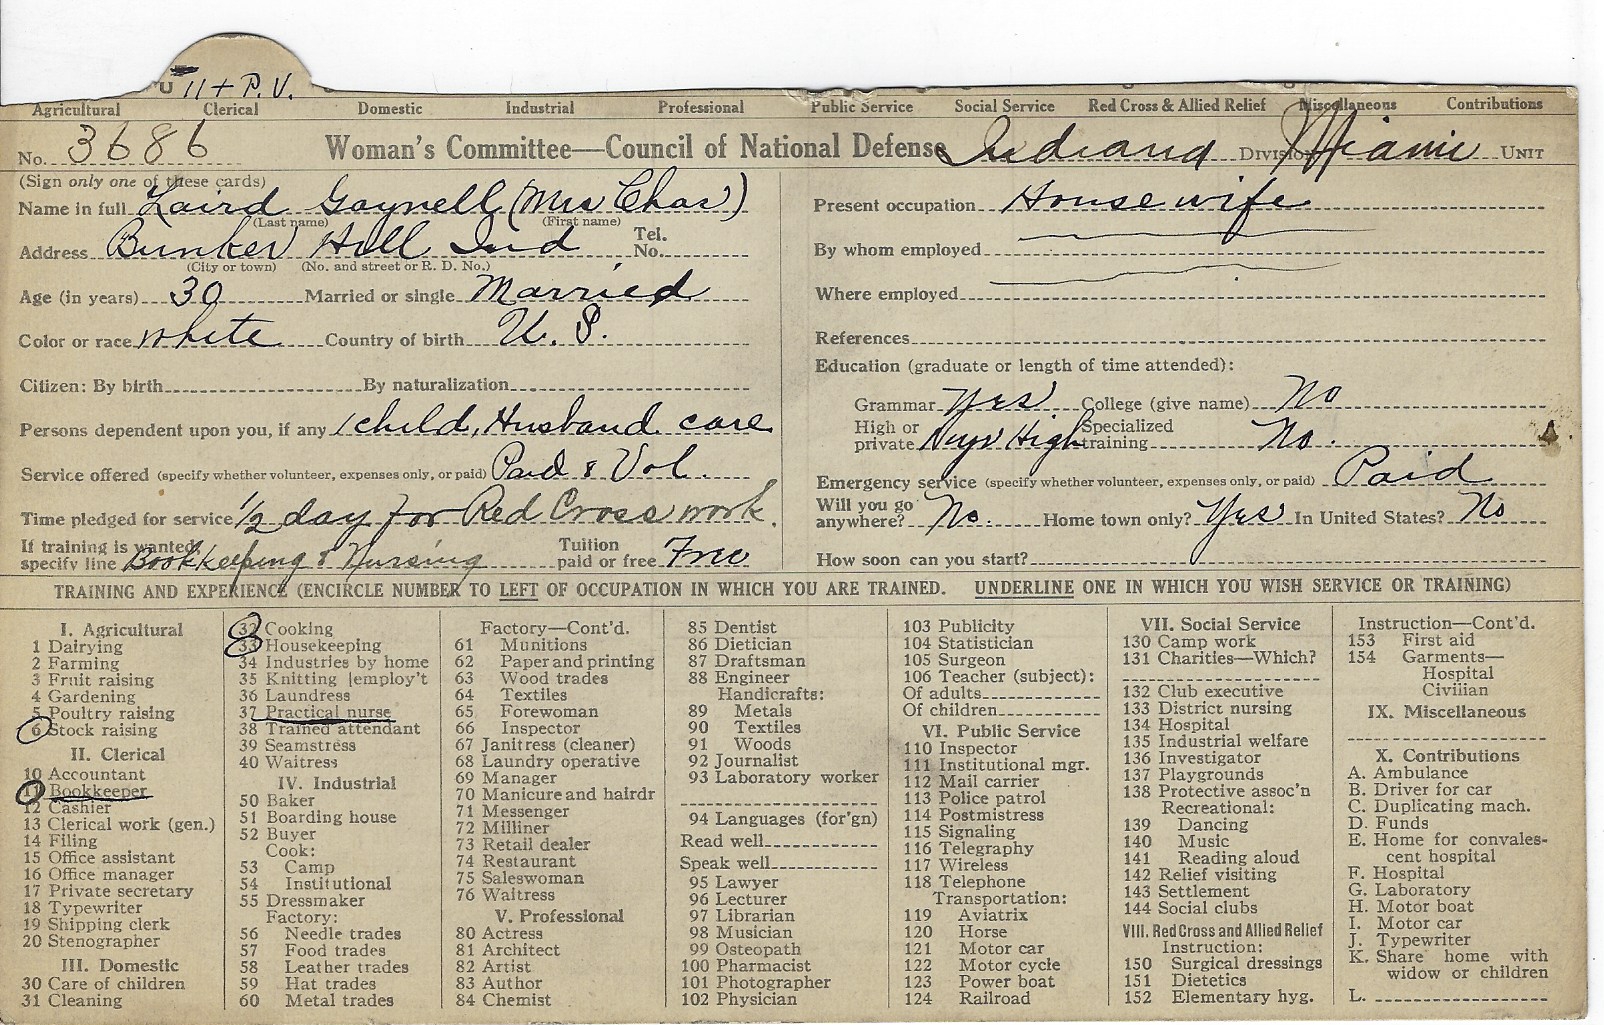 11 + P. V.
Agricultural Clerical Domestic Industrial Professional Public Service Social Service Red Cross & Allied Relief Miscellaneous Contributions
No. 3686 Woman's Committee—Council of National Defense Indiana Division Miami Unit
(Sign only one of these cards)
Name in full Laird Gaynell (Mrs Chas)
(Last name) (First name)
Address Bunker Hill Ind Tel. No.
(City or town) (No. and street or R. D. No.)
Age (in years) 30 Married or single Married
Color or race white Country of birth U. S.
Citizen: By birth By naturalization
Persons dependent upon you, if any 1 child, Husband care
Service offered (specify whether volunteer, expenses only, or paid) Paid & Vol.
Time pledged for service 1/2 day for Red Cross work.
If training is wanted, specify line Bookkeeping & Nursing Tuition paid or free Free
Present occupation House wife
By whom employed
Where employed
References
Education (graduate or length of time attended):
Grammar Yes. College (give name) No
High or private High Specialized training No.
Emergency service (specify whether volunteer, expenses only, or paid) Paid
Will you go anywhere? No. Home town only? Yes In United States? No
How soon can you start?
TRAINING AND EXPERIENCE (ENCIRCLE NUMBER TO LEFT OF OCCUPATION IN WHICH YOU ARE TRAINED. UNDERLINE ONE IN WHICH YOU WISH SERVICE OR TRAINING)
I. Agricultural
1 Dairying
2 Farming
3 Fruit raising
4 Gardening
5 Poultry raising
6 Stock raising
II. Clerical
10 Accountant
11 Bookkeeper
12 Cashier
13 Clerical work (gen.)
14 Filing
15 Office assistant
16 Office manager
17 Private secretary
18 Typewriter
19 Shipping clerk
20 Stenographer
III. Domestic
30 Care of children
31 Cleaning
32 Cooking
33 Housekeeping
34 Industries by home
35 Knitting [employ't
36 Laundress
37 Practical nurse
38 Trained attendant
39 Seamstress
40 Waitress
IV. Industrial
50 Baker
51 Boarding house
52 Buyer
Cook:
53 Camp
54 Institutional
55 Dressmaker
Factory:
56 Needle trades
57 Food trades
58 Leather trades
59 Hat trades
60 Metal trades
Factory—Cont'd.
61 Munitions
62 Paper and printing
63 Wood trades
64 Textiles
65 Forewoman
66 Inspector
67 Janitress (cleaner)
68 Laundry operative
69 Manager
70 Manicure and hairdr
71 Messenger
72 Milliner
73 Retail dealer
74 Restaurant
75 Saleswoman
76 Waitress
V. Professional
80 Actress
81 Architect
82 Artist
83 Author
84 Chemist
85 Dentist
86 Dietician
87 Draftsman
88 Engineer
Handicrafts:
89 Metals
90 Textiles
91 Woods
92 Journalist
93 Laboratory worker
94 Languages (for'gn)
Read well
Speak well
95 Lawyer
96 Lecturer
97 Librarian
98 Musician
99 Osteopath
100 Pharmacist
101 Photographer
102 Physician
103 Publicity
104 Statistician
105 Surgeon
106 Teacher (subject):
Of adults
Of children
VI. Public Service
110 Inspector
111 Institutional mgr.
112 Mail carrier
113 Police patrol
114 Postmistress
115 Signaling
116 Telegraphy
117 Wireless
118 Telephone
Transportation:
119 Aviatrix
120 Horse
121 Motor car
122 Motor cycle
123 Power boat
124 Railroad
VII. Social Service
130 Camp work
131 Charities—Which?
132 Club executive
133 District nursing
134 Hospital
135 Industrial welfare
136 Investigator
137 Playgrounds
138 Protective assoc'n
Recreational:
139 Dancing
140 Music
141 Reading aloud
142 Relief visiting
143 Settlement
144 Social clubs
VIII. Red Cross and Allied Relief
Instruction:
150 Surgical dressings
151 Dietetics
152 Elementary hyg.
Instruction—Cont'd.
153 First aid
154 Garments—
Hospital
Civilian
IX. Miscellaneous
X. Contributions
A. Ambulance
B. Driver for car
C. Duplicating mach.
D. Funds
E. Home for convales-
cent hospital
F. Hospital
G. Laboratory
H. Motor boat
I. Motor car
J. Typewriter
K. Share home with
widow or children
L.